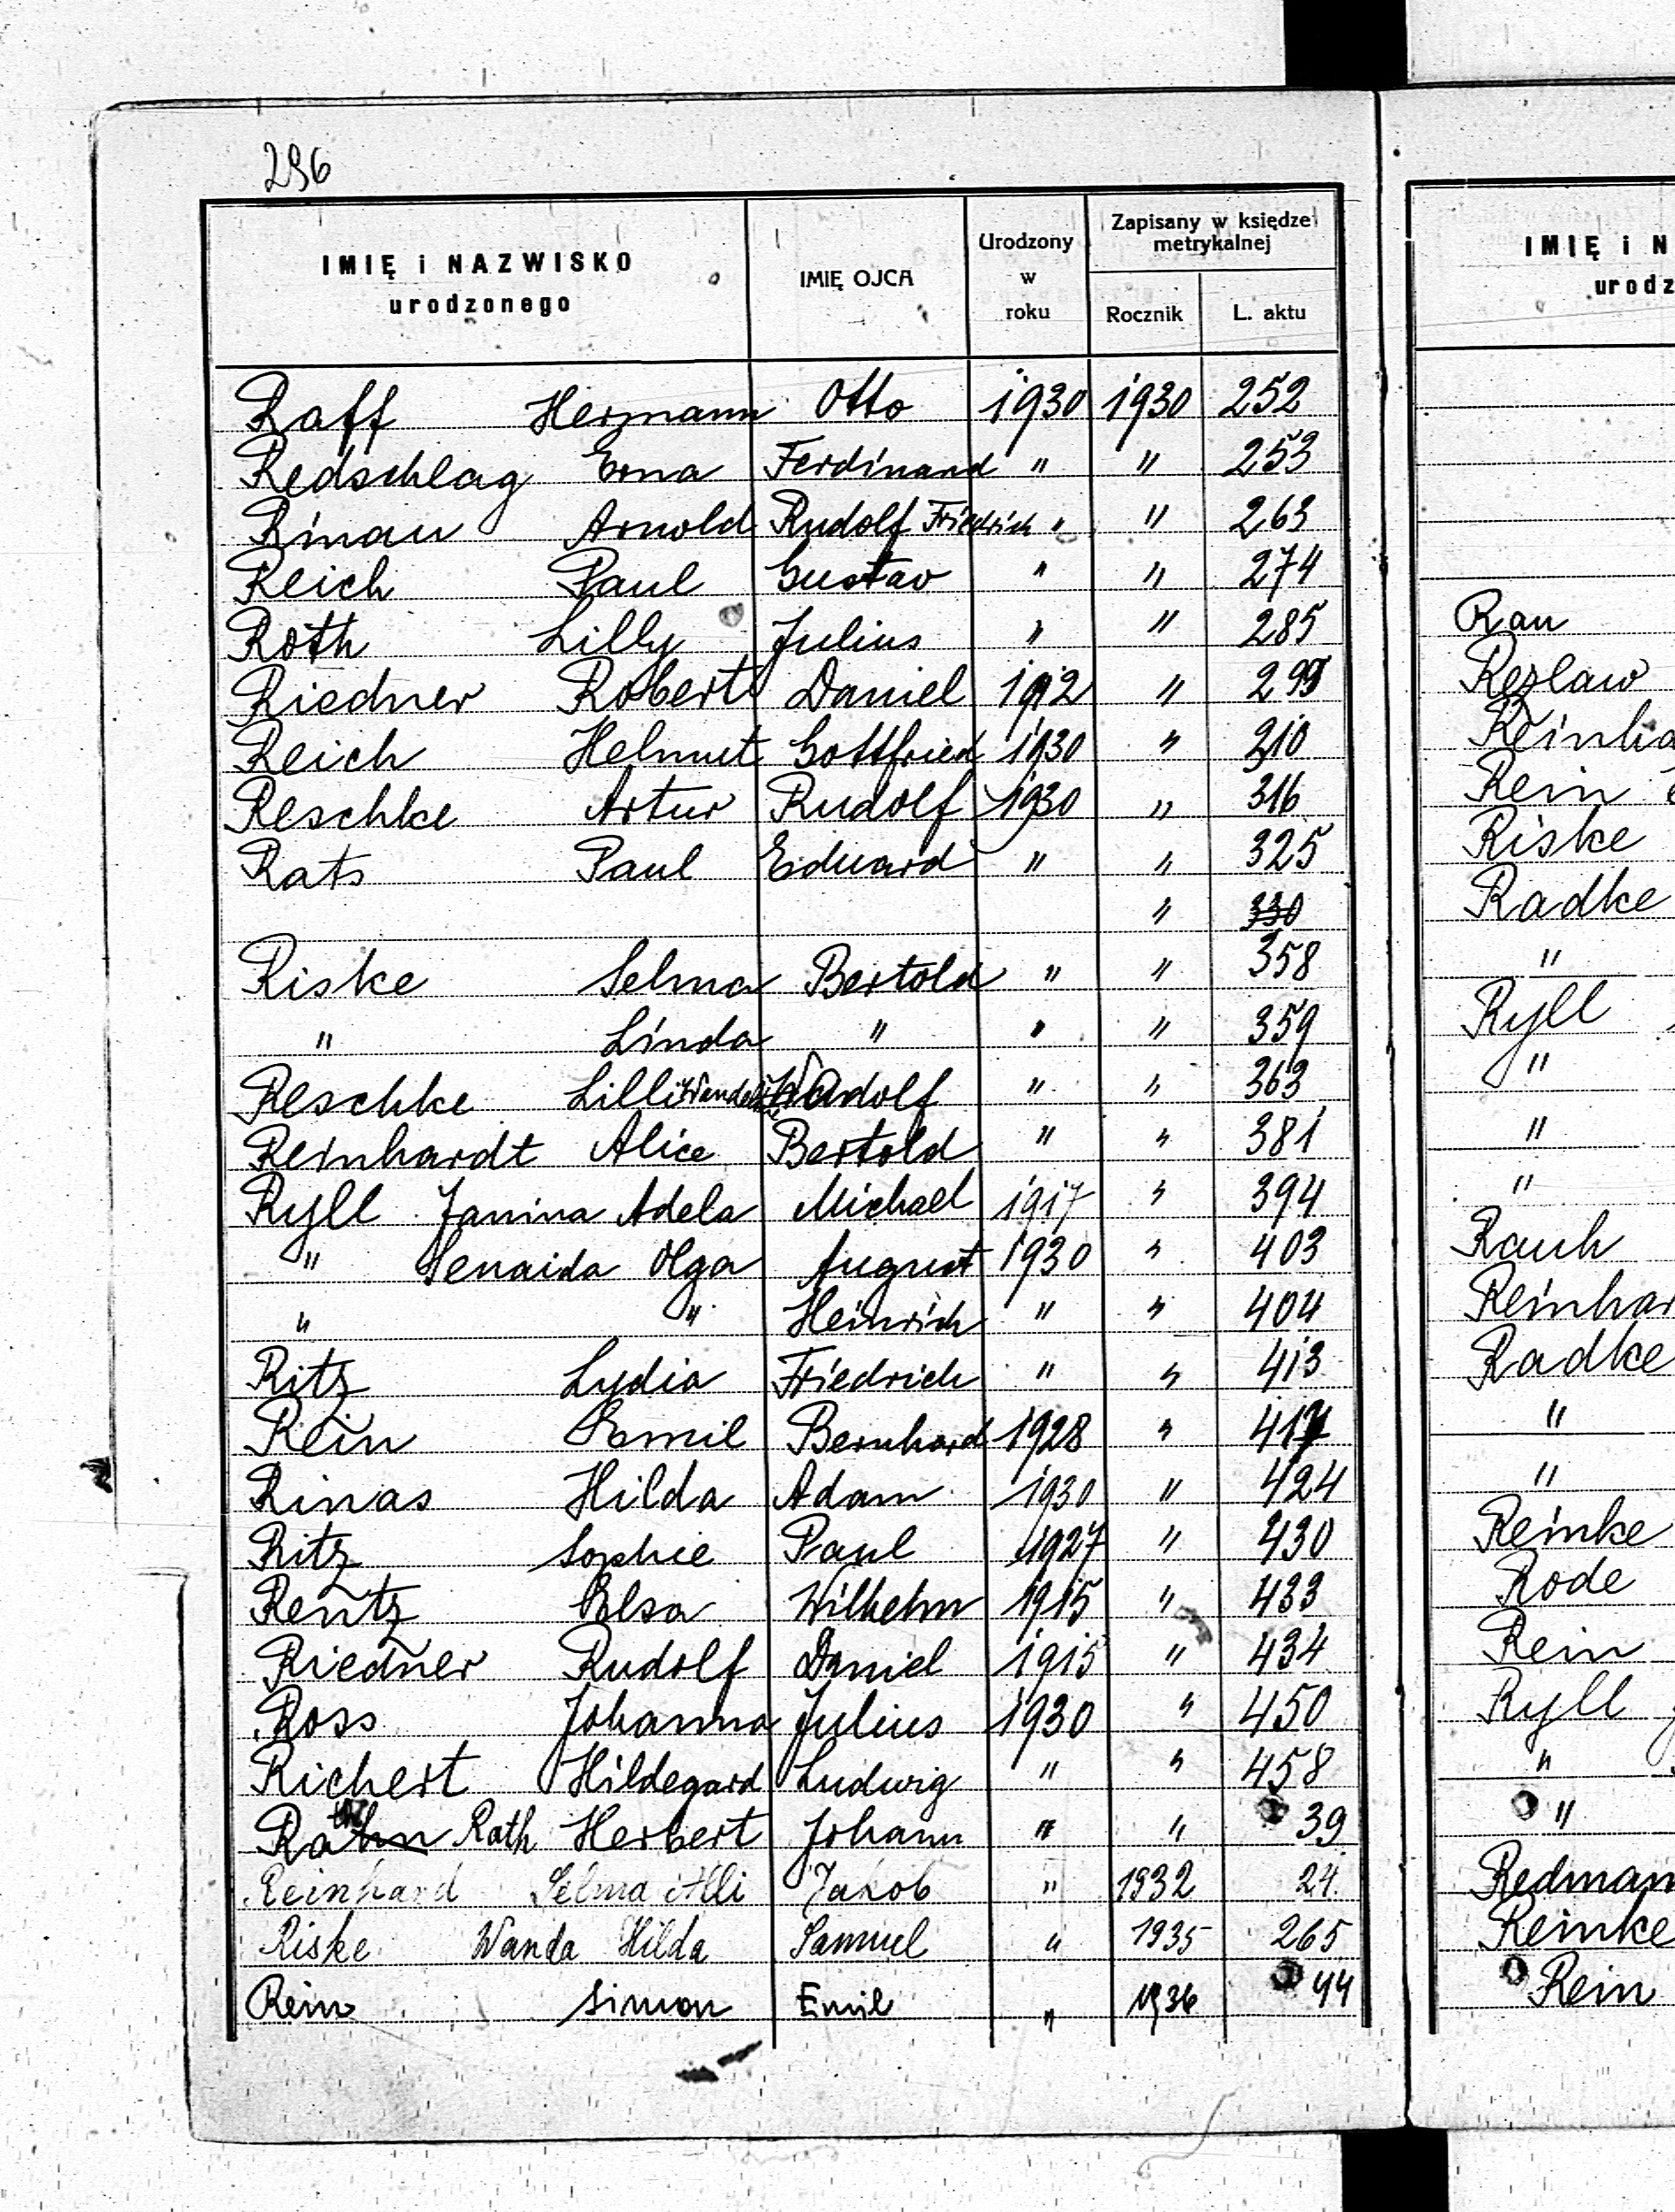 296
IMIĘ i NAZWISKO urodzonego IMIĘ OJCA Urodzony w roku Zapisany w księdze metrykalnej Rocznik L. aktu
Raff Hermann Otto 1930 1930 252
Redschlag Erna Ferdinand " " 253
Rinau Arnold Rudolf Friedrich " " 263
Reich Paul Gustav " " 274
Roth Lilly Julius " " 285
Riedner Robert Daniel 1912 " 299
Reich Helmut Gottfried 1930 " 310
Reschke Artur Rudolf 1930 " 316
Rats Paul Eduard " " 325
" 330
Riske Selma Bertold " " 358
" Linda " " " 359
Reschke Lilli " " 363
Reinhardt Alice Bertold " " 381
Ryll Janina Adela Michael 1917 " 394
" Senaida Olga August 1930 " 403
" " Heinrich " " 404
Ritz Lydia Friedrich " " 413
Rein Emil Bernhard 1928 " 417
Rinas Hilda Adam 1930 " 424
Ritz Sophie Paul 1927 " 430
Rentz Elsa Wilhelm 1915 " 433
Riedner Rudolf Daniel 1915 " 434
Ross Johanna Julius 1930 " 450
Richert Hildegard Ludwig " " 458
Rath Herbert Johann " " 39
Reinhard Selma Alli Jakob " 1932 24
Riske Wanda Hilda Samuel " 1935 265
Rein Simon Emil " 1936 44
IMIĘ i N
urodz
Rau
Rezlaw
Reinha
Rein
Riske
Radke
"
Ryll
"
"
"
Rauh
Reinhar
Radke
"
"
Reinke
Rode
Rein
Ryll
"
"
Redman
Reinke
Rein